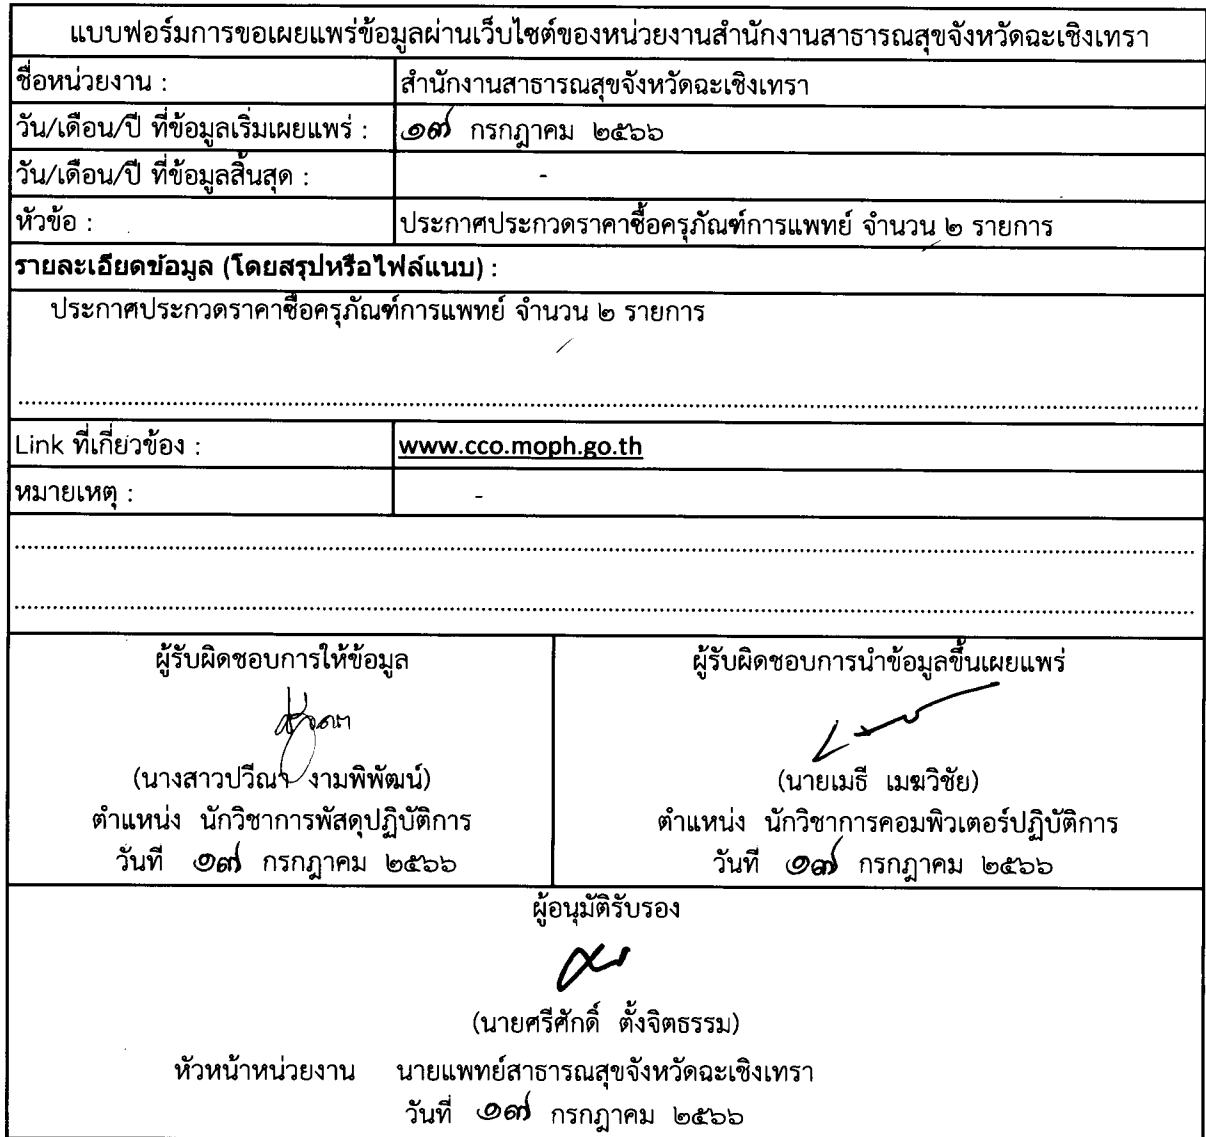 แบบฟอร์มการขอเผยแพร่ข้อมูลผ่านเว็บไซต์ของหน่วยงานสำนักงานสาธารณสุขจังหวัดฉะเชิงเทรา
ชื่อหน่วยงาน : สำนักงานสาธารณสุขจังหวัดฉะเชิงเทรา
วัน/เดือน/ปี ที่ข้อมูลเริ่มเผยแพร่ : ๑๗ กรกฎาคม ๒๕๖๖
วัน/เดือน/ปี ที่ข้อมูลสิ้นสุด : -
หัวข้อ : ประกาศประกวดราคาซื้อครุภัณฑ์การแพทย์ จำนวน ๒ รายการ
รายละเอียดข้อมูล (โดยสรุปหรือไฟล์แนบ) :
ประกาศประกวดราคาซื้อครุภัณฑ์การแพทย์ จำนวน ๒ รายการ
Link ที่เกี่ยวข้อง : www.cco.moph.go.th
หมายเหตุ : -
ผู้รับผิดชอบการให้ข้อมูล ผู้รับผิดชอบการนำข้อมูลขึ้นเผยแพร่
(นางสาวปวีณา งามพิพัฒน์) (นายเมธี เมฆวิชัย)
ตำแหน่ง นักวิชาการพัสดุปฏิบัติการ ตำแหน่ง นักวิชาการคอมพิวเตอร์ปฏิบัติการ
วันที่ ๑๗ กรกฎาคม ๒๕๖๖ วันที่ ๑๗ กรกฎาคม ๒๕๖๖
ผู้อนุมัติรับรอง
(นายศรีศักดิ์ ตั้งจิตธรรม)
หัวหน้าหน่วยงาน นายแพทย์สาธารณสุขจังหวัดฉะเชิงเทรา
วันที่ ๑๗ กรกฎาคม ๒๕๖๖